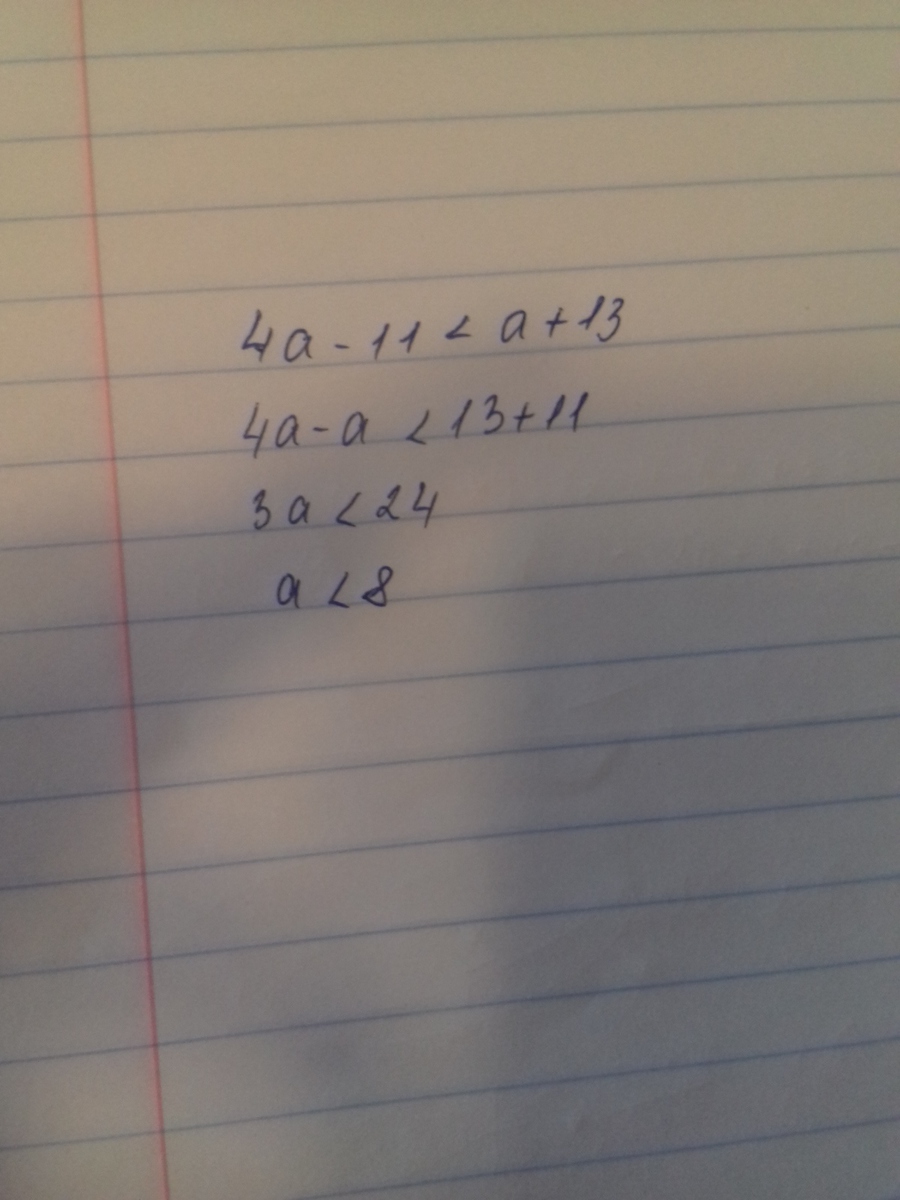 4a - 11 < a + 13
4a - a < 13 + 11
3a < 24
a < 8